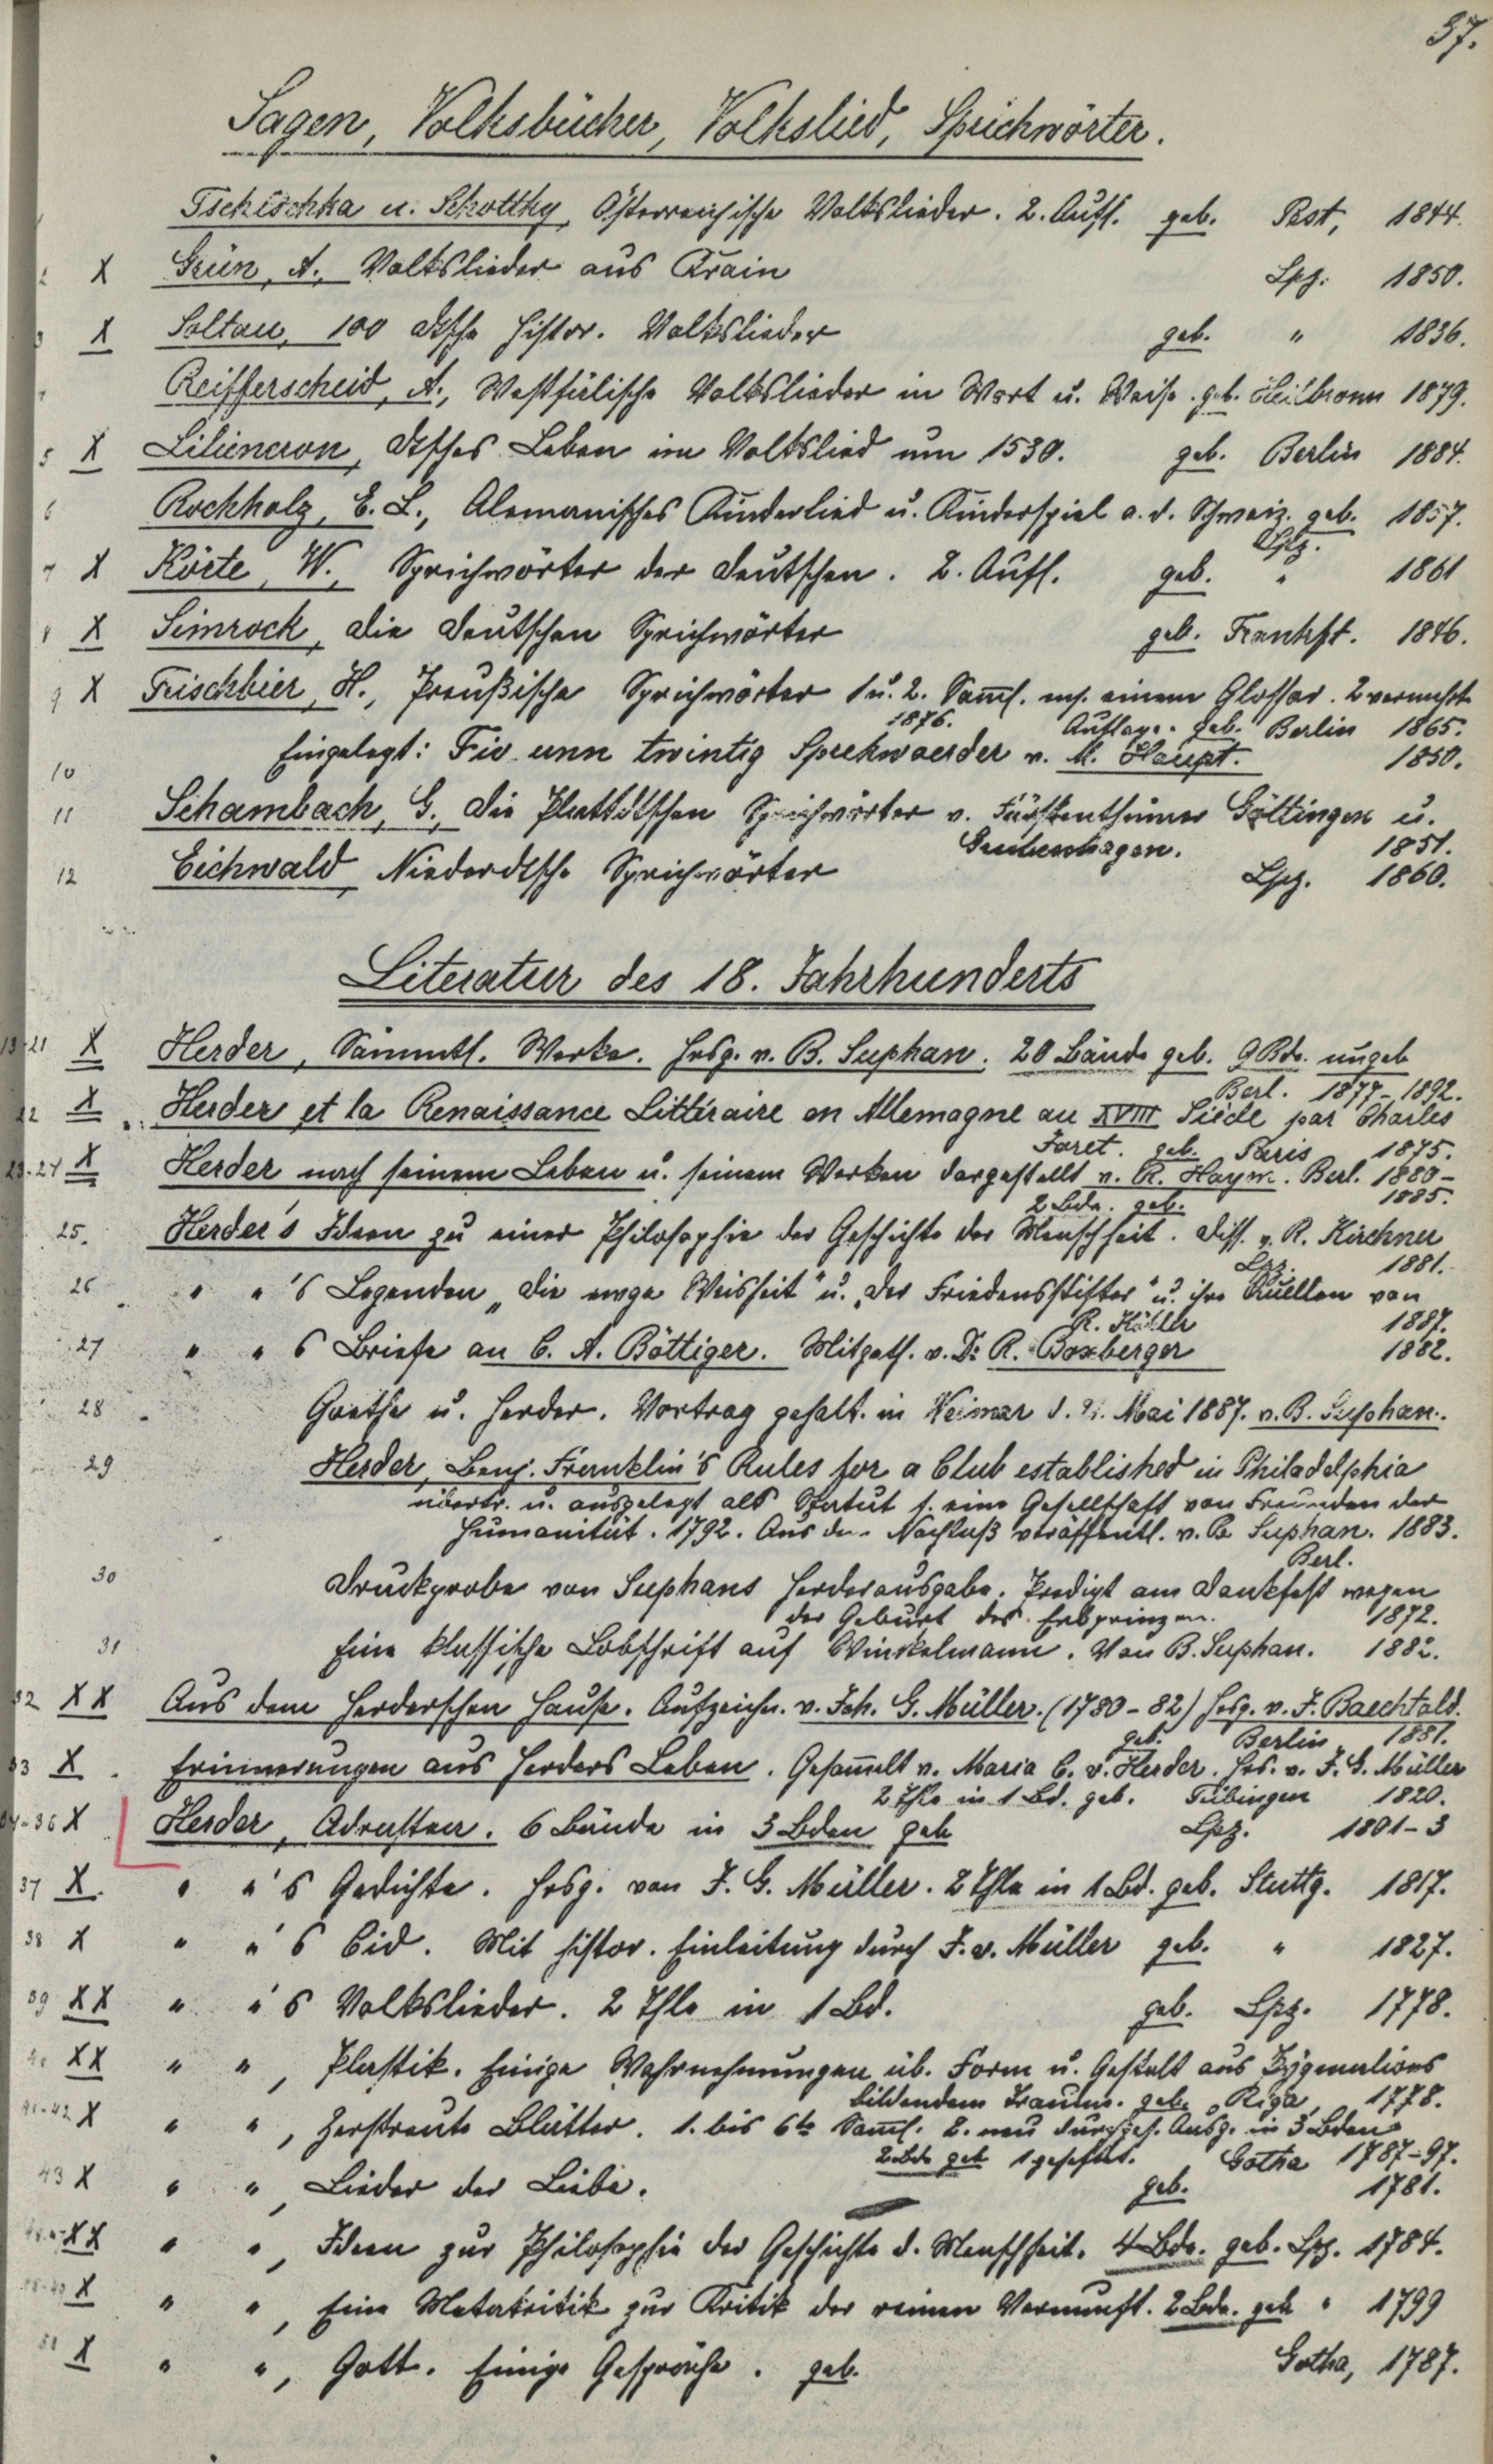 37.
Sagen, Volksbücher, Volkslied, Sprichwörter.
1 Tschischka u. Schottky, Österreichische Volkslieder. 2. Aufl. geb. Pest, 1844.
2 X Grün, A., Volkslieder aus Krain Lpz. 1850.
3 X Soltau, 100 dtsche histor. Volkslieder geb. " 1836.
4 Reifferscheid, A., Westfälische Volkslieder in Wort u. Weise. geb. Heilbronn 1879.
5 X Liliencron, dtsches Leben im Volkslied um 1530. geb. Berlin 1884.
6 Rochholz, E. L., Alemanisches Kinderlied u. Kinderspiel a. d. Schweiz. geb. 1857.
Lpz.
7 X Körte, W., Sprichwörter der Deutschen. 2. Aufl. geb. " 1861
8 X Simrock, die deutschen Sprichwörter geb. Frankft. 1846.
9 X Frischbier, H., Preußische Sprichwörter 1 u. 2. Samml. m. einem Glossar. 2 vermehrte
1876. Auflage. geb. Berlin 1865.
10 Eingelegt: Fiv unn twintig Sprekwoerder v. M. Haupt. 1850.
11 Schambach, G., die Plattdtschen Sprichwörter v. Fürstenthümer Göttingen u.
Grubenhagen. 1851.
12 Eichwald, Niederdtsche Sprichwörter Lpz. 1860.
Literatur des 18. Jahrhunderts
13-21 X Herder, Sämmtl. Werke. Hrsg. v. B. Suphan. 20 Bände geb. 9 Bde. ungeb
Berl. 1877-1892.
22 X Herder et la Renaissance Littéraire en Allemagne au XVIII Siècle par Charles
Joret. geb. Paris 1875.
23-24 X Herder nach seinem Leben u. seinem Werken dargestellt v. R. Haym. Berl. 1880-
2 Bde. geb. 1885.
25. Herder's Ideen zu einer Philosophie der Geschichte der Menschheit. Diss. v. R. Kirchner
Lpz. 1881.
26 " " 's Legenden „Die ewge Weisheit" u. „Der Friedensstifter" u. ihre Quellen von
R. Köhler 1887.
27 " " s Briefe an C. A. Böttiger. Mitgeth. v. Dr. R. Boxberger 1882.
28 Goethe u. Herder. Vortrag gehalt. in Weimar d. 21. Mai 1887. v. B. Suphan.
29 Herder, Benj. Franklin's Rules for a Club established in Philadelphia
übertr. u. ausgelegt als Statut f. eine Gesellschaft von Freunden der
Humanität. 1792. Aus dem Nachlaß veröffentl. v. B. Suphan. 1883.
Berl.
30 Druckprobe von Suphans Herderausgabe. Predigt am Dankfest wegen
der Geburt des Erbprinzen. 1872.
31 Eine klassische Lobschrift auf Winckelmann. Von B. Suphan. 1882.
32 X X Aus dem Herderschen Hause. Aufzeichn. v. Joh. G. Müller. (1780-82) Hrsg. v. J. Baechtold.
geb. Berlin 1881.
33 X Erinnerungen aus Herders Leben. Gesammelt v. Maria C. v. Herder. Hrs. v. J. G. Müller
2 Thle in 1 Bd. geb. Tübingen 1820.
34-36 X Herder, Adrastea. 6 Bände in 3 Bden geb Lpz. 1801-3
37 X " " 's Gedichte. Hrsg. von J. G. Müller. 2 Thle in 1 Bd. geb. Stuttg. 1817.
38 X " " 's Cid. Mit histor. Einleitung durch J. v. Müller geb. " 1827.
39 X X " " 's Volkslieder. 2 Thle in 1 Bd. geb. Lpz. 1778.
40 X X " " , Plastik. Einige Wahrnehmungen üb. Form u. Gestalt aus Pygmalions
bildendem Traume. geb. Riga, 1778.
41-42 X " " , Zerstreute Blätter. 1. bis 6te Samml. 2. neu durchges. Ausg. in 3 Bden
2 Bde geb 1 geheftet. Gotha 1787-97.
43 X " " , Lieder der Liebe. geb. 1781.
X X " " , Ideen zur Philosophie der Geschichte d. Menschheit. 4 Bde. geb. Lpz. 1784.
X " " , Eine Metakritik zur Kritik der reinen Vernunft. 2 Bde. geb " 1799
X " " , Gott. Einige Gespräche. geb. Gotha, 1787.